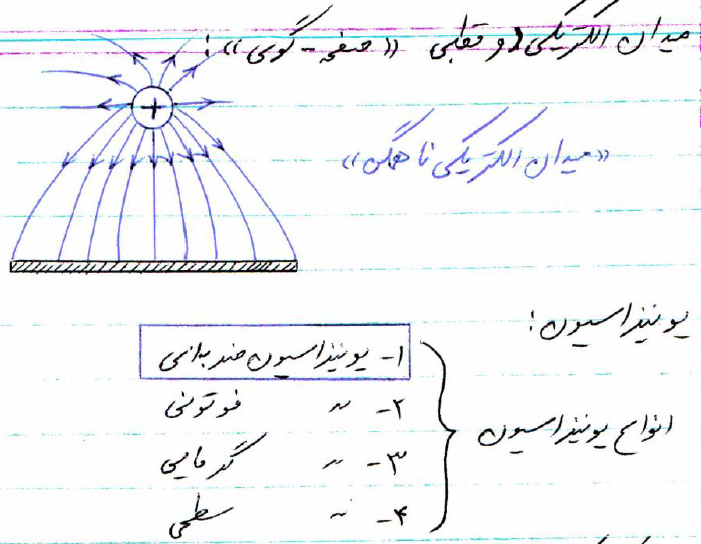 میدان الکتریکی دو قطبی «صفحه - گوی»:
+
«میدان الکتریکی ناهمگن»
یونیزاسیون:
انواع یونیزاسیون
۱- یونیزاسیون ضربه‌ای
۲- 〃 فوتونی
۳- 〃 گرمایی
۴- 〃 سطحی